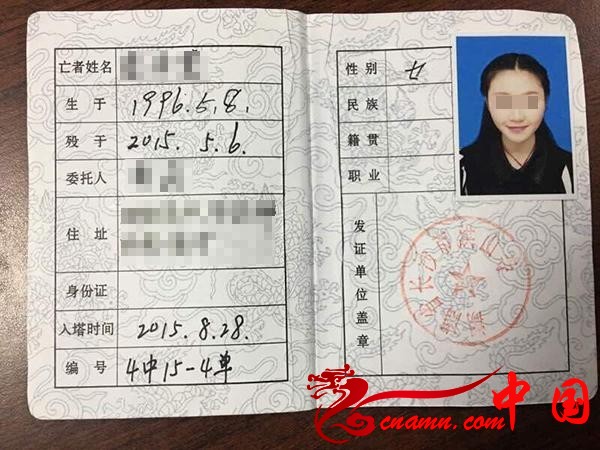 亡者姓名
生于 1996.5.8.
殁于 2015.5.6.
委托人
住址
身份证
入塔时间 2015.8.28.
编号 4中15-4单
性别 女
民族
籍贯
职业
发证单位盖章
中国
cnamn.com